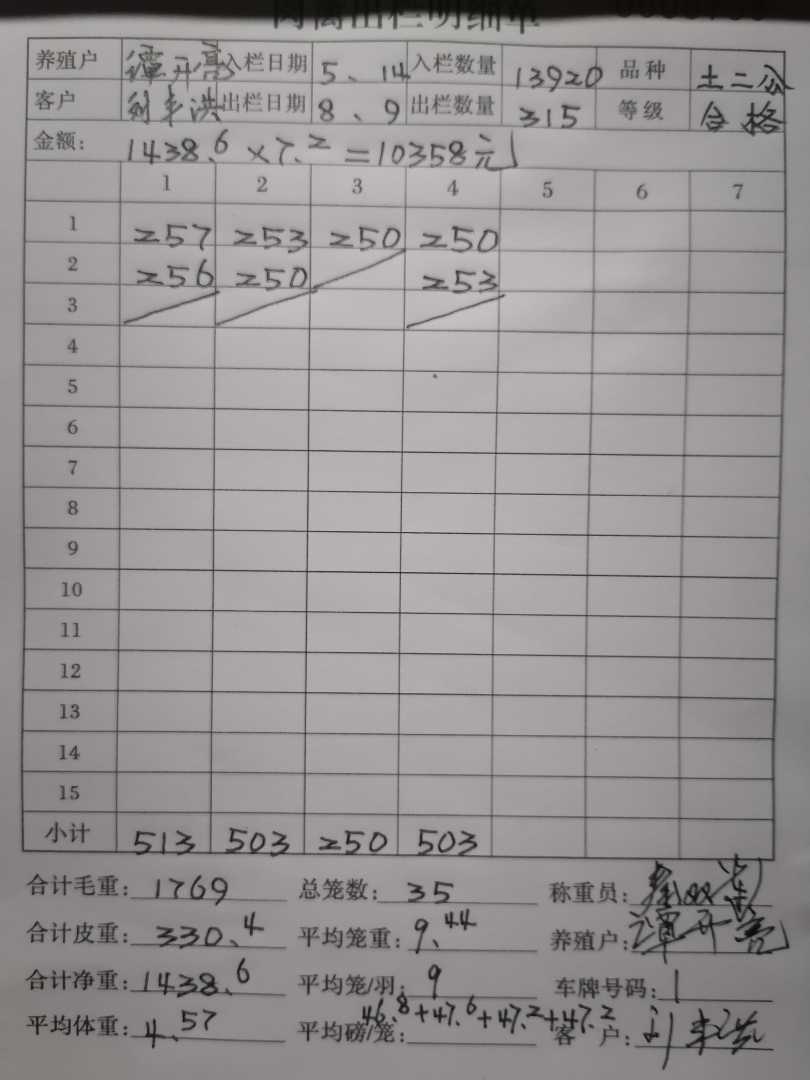 出栏明细单
养殖户 谭开亮 入栏日期 5、14 入栏数量 13920 品种 土二公
客户 刘丰洪 出栏日期 8、9 出栏数量 315 等级 合格
金额: 1438.6×7.2=10358元
1 2 3 4 5 6 7
1 257 253 250 250
2 256 250 253
3
4
5
6
7
8
9
10
11
12
13
14
15
小计 513 503 250 503
合计毛重: 1769 总笼数: 35 称重员:
合计皮重: 330.4 平均笼重: 9.44 养殖户: 谭开亮
合计净重: 1438.6 平均笼/羽: 9 车牌号码: 1
平均体重: 4.57 平均磅/笼: 46.8+47.6+47.2+47.2 客户: 刘丰洪